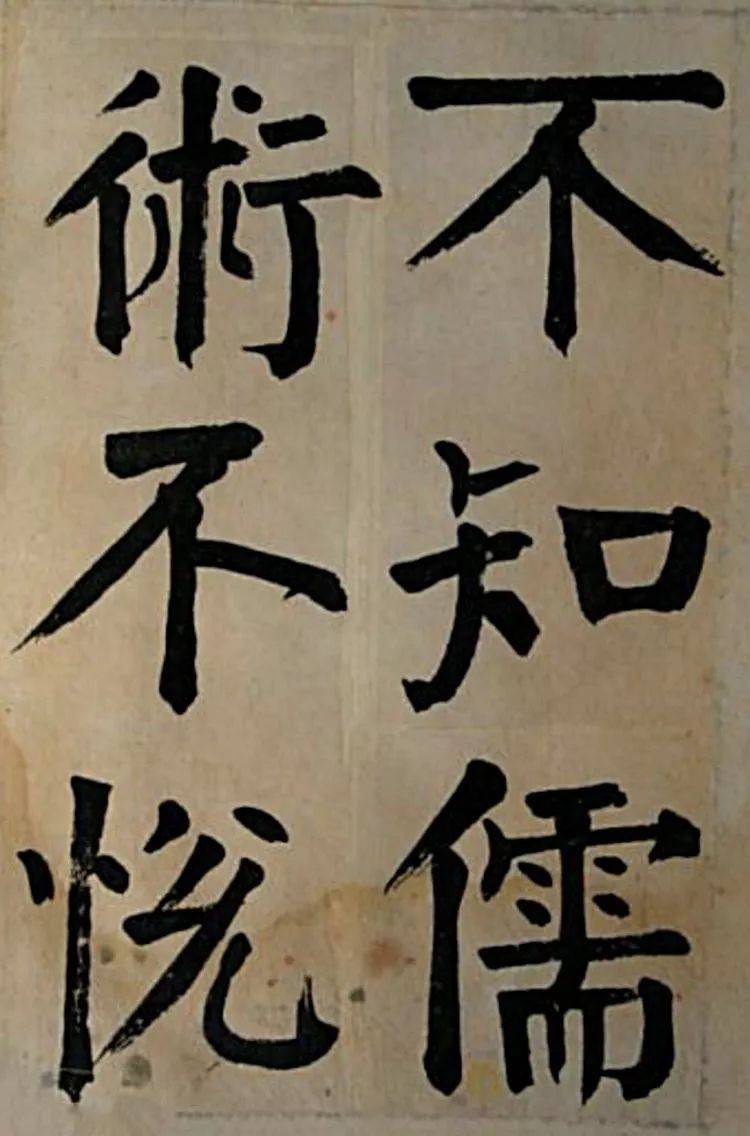 不知儒
術不悅